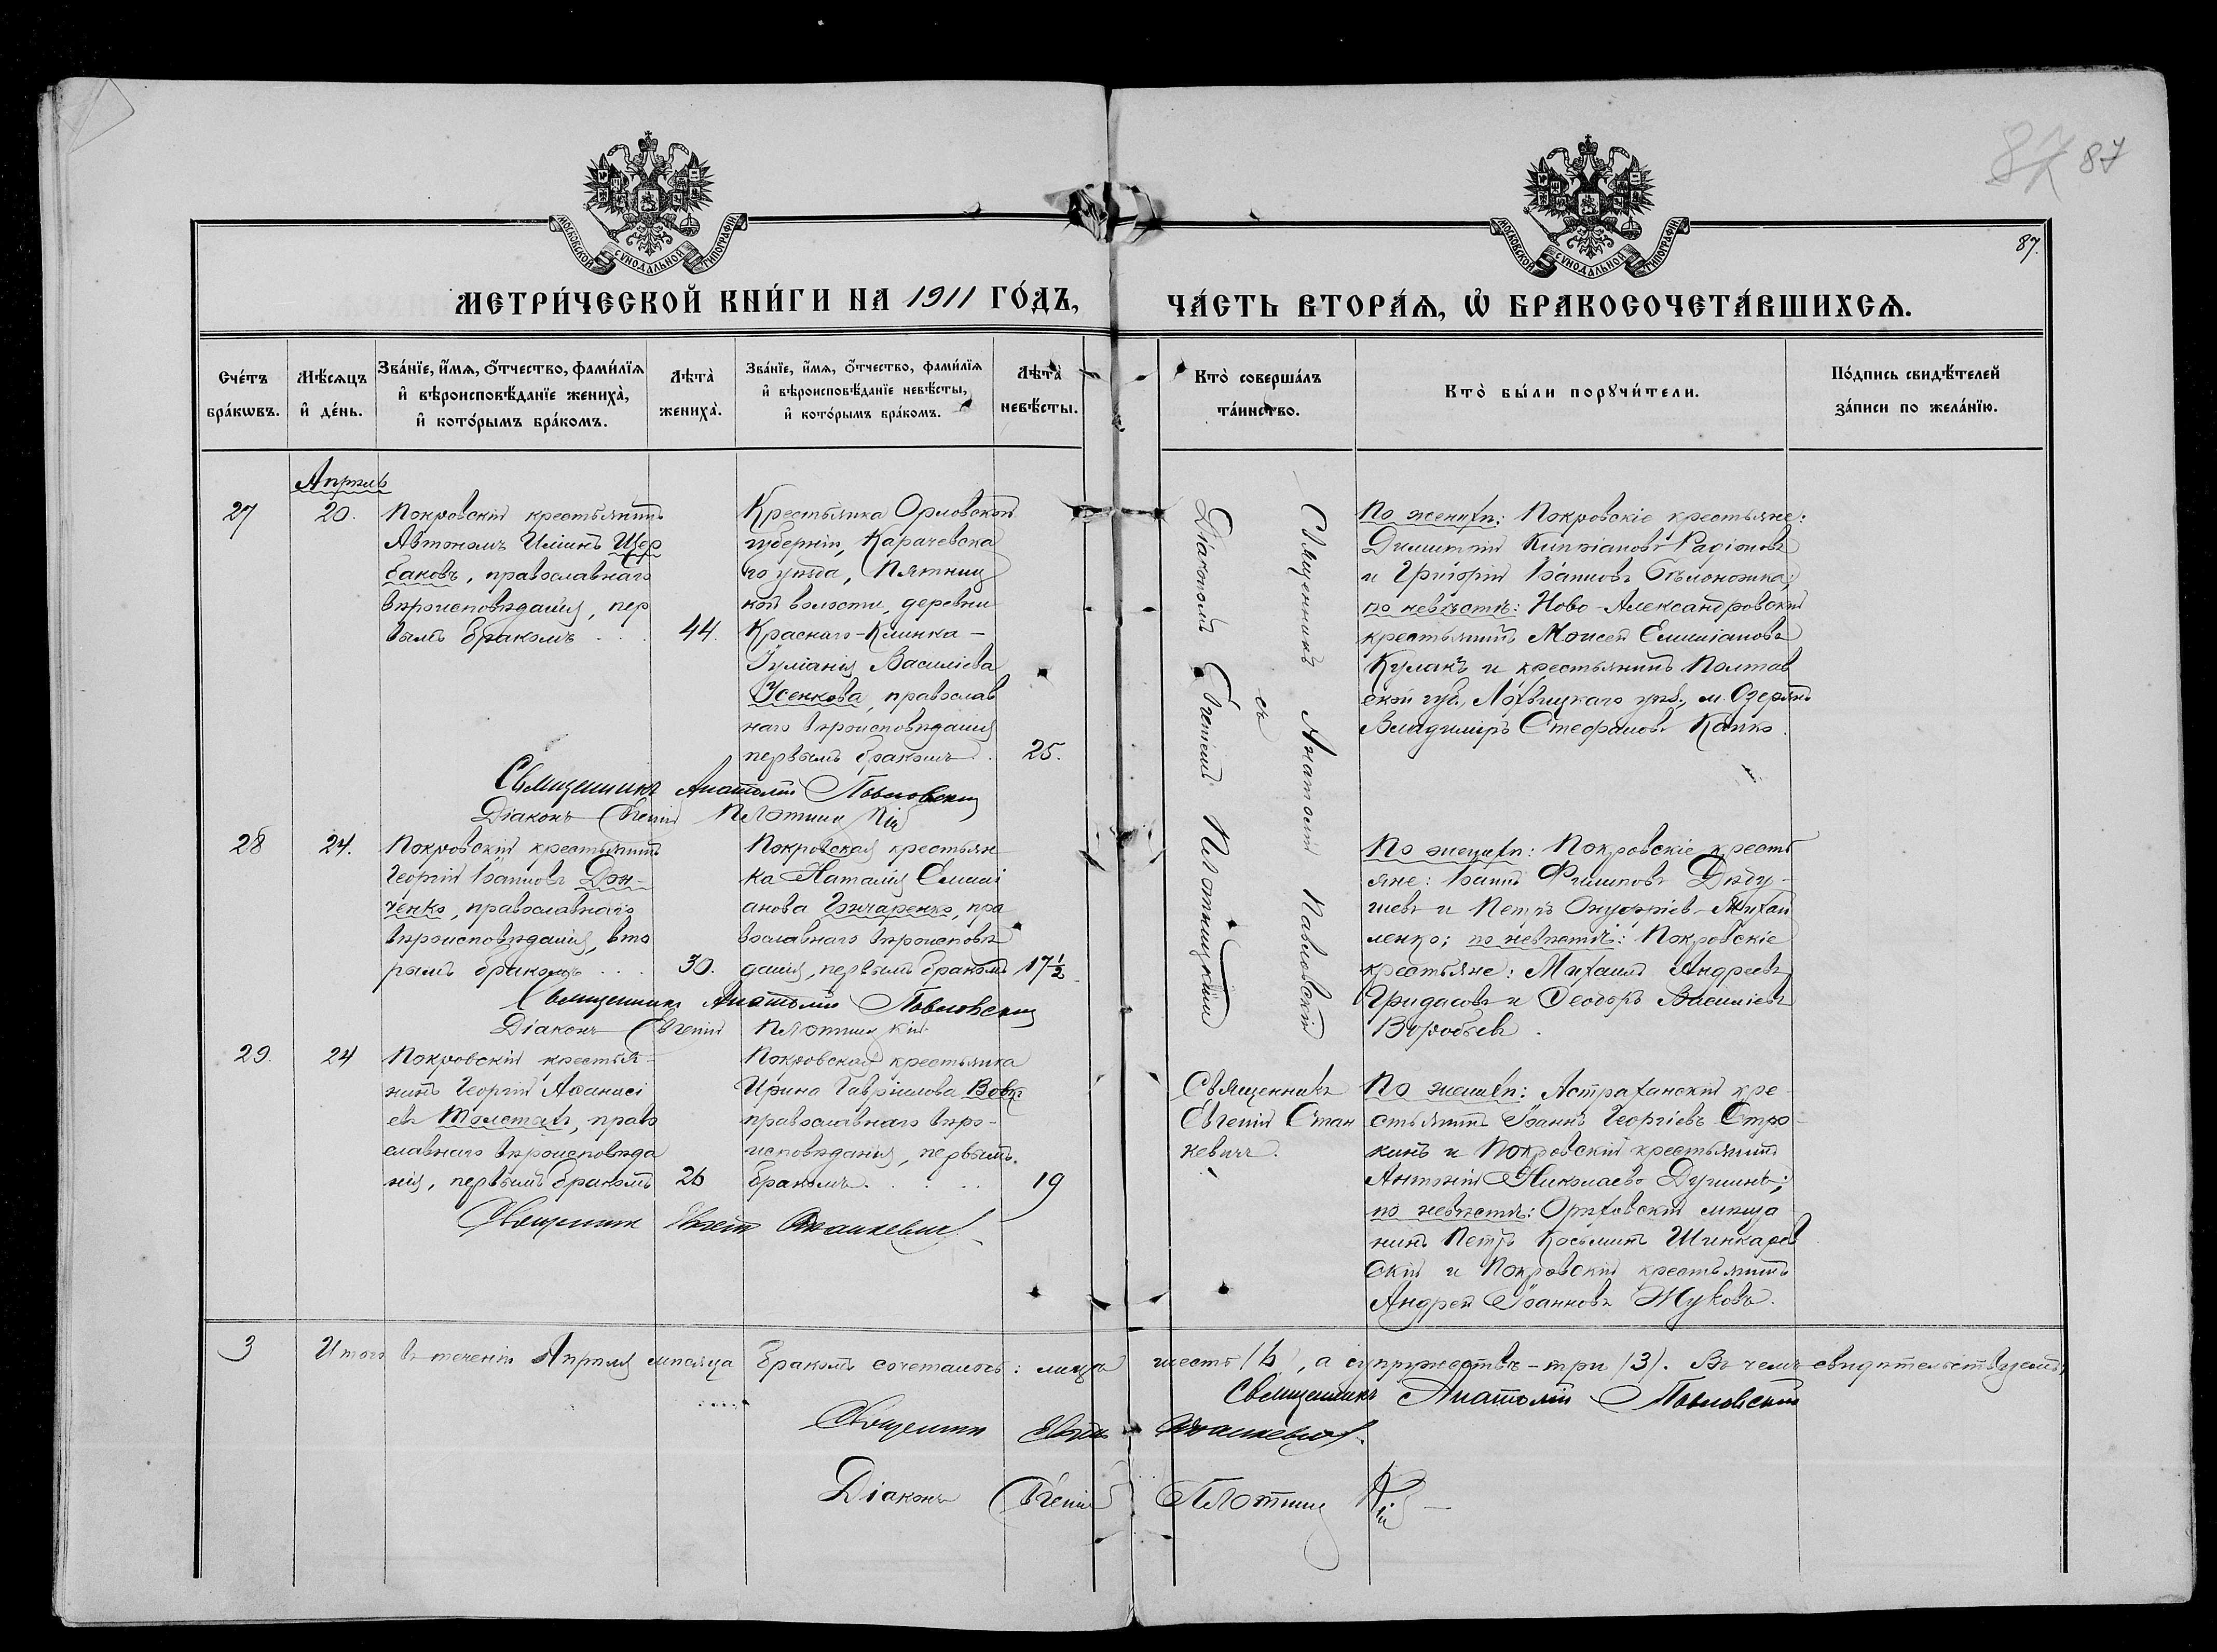 87 87
87.
МОСКОВСКОЙ СѴНОДАЛЬНОЙ ТИПОГРАФІИ
МОСКОВСКОЙ СѴНОДАЛЬНОЙ ТИПОГРАФІИ
МЕТРИ́ЧЕСКОЙ КНИ́ГИ НА 1911 ГО́ДЪ,
ЧА́СТЬ ВТОРА́Ѧ, Ѡ҆ БРАКОСОЧЕТА́ВШИХСѦ.
Сче́тъ бра́кωвъ.
Мѣ́сѧцъ и҆ де́нь.
Зва́нїе, и҆́мѧ, ѻ҆́тчество, фами́лїѧ
и҆ вѣроисповѣ́данїе жениха̀,
и҆ кото́рымъ бра́комъ.
Лѣта̀ жениха̀.
Зва́нїе, и҆́мѧ, ѻ҆́тчество, фами́лїѧ
и҆ вѣроисповѣ́данїе невѣ́сты,
и҆ кото́рымъ бра́комъ.
Лѣта̀ невѣ́сты.
Кто̀ соверша́лъ
та́инство.
Кто̀ бы́ли порꙋчи́тели.
По́дпись свидѣ́телей
за́писи по жела́нїю.
Апрѣль
27
20.
Покровскій крестьянинъ
Автономъ Ильинъ Щер
баковъ, православнаго
вѣроисповѣданія, пер
вымъ бракомъ . . .
44.
Крестьянка Орловской
губерніи, Карачевска
го уѣзда, Пятниц
кой волости, деревни
Краснаго-Клинка -
Іуліанія Василіева
Усенкова, православ
наго вѣроисповѣданія
первымъ бракомъ .
25.
Священникъ Анатолій Павловскій
съ
Діакономъ Евгеніемъ Плотницкимъ
По женихѣ: Покровскіе крестьяне:
Димитрій Кипріановъ Радіоновъ
и Григорій Іоанновъ Бѣлоножка,
по невѣстѣ: Ново-Александровскій
крестьянинъ Моисей Емиліановъ
Кулакъ и крестьянинъ Полтав
ской губ., Лохвицкаго уѣз., м. Озерянъ
Владиміръ Стефановъ Капко.
Священникъ Анатолій Павловскій
Діаконъ Евгеній Плотницкій
28
24.
Покровскій крестьянинъ
Георгій Іоанновъ Дон-
ченко, православнаго
вѣроисповѣданія, вто
рымъ бракомъ . . .
30.
Покровская крестьян
ка Наталія Емилі
анова Гончаренко, пра
вославнаго вѣроисповѣ
данія, первымъ бракомъ
17½
По женихѣ: Покровскіе кресть
яне: Іоаннъ Филиповъ Дѣду-
шевъ и Петръ Онуфріевъ Михай
ленко; по невѣстѣ: Покровскіе
крестьяне: Михаилъ Андреевъ
Гридасовъ и Ѳеодоръ Василіевъ
Воробьевъ.
Священникъ Анатолій Павловскій
Діаконъ Евгеній Плотницкій
29.
24
Покровскій крестья-
нинъ Георгій Аѳанасі
евъ Толстовъ, право
славнаго вѣроисповѣда
нія, первымъ бракомъ
26
Покровская крестьянка
Ирина Гавріилова Вовк
православнаго вѣро-
исповѣданія, первымъ
бракомъ. . . .
19
Священникъ
Евгеній Стан
кевичъ.
По женихѣ: Астраханскій кре-
стьянинъ Іоаннъ Георгіевъ Стро-
кинъ и Покровскій крестьянинъ
Антоній Николаевъ Душинъ;
по невѣстѣ: Орѣховскій мѣща
нинъ Петръ Косьминъ Шинкарев
скій и Покровскій крестьянинъ
Андрей Іоанновъ Жуковъ.
Священникъ Евгеній Станкевичъ
3
Итого въ теченіи Апрѣля мѣсяца бракомъ сочеталось: лицъ шесть (6), а супружествъ - три (3). Въ чемъ свидѣтельствуемъ:
Священникъ Анатолій Павловскій
Священникъ Евгеній Станкевичъ
Діаконъ Евгеній Плотницкій